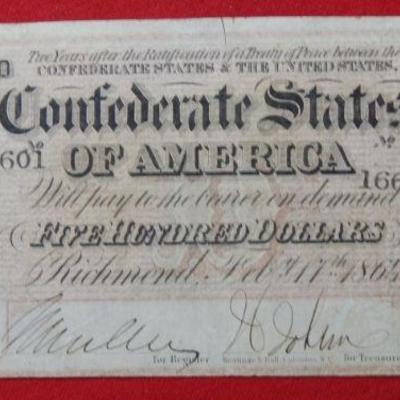 Two Years after the Ratification of a Treaty of Peace between the
CONFEDERATE STATES & THE UNITED STATES,
Confederate States
No
601 OF AMERICA
166
Will pay to the bearer on demand
FIVE HUNDRED DOLLARS
Richmond, Feb. 17th 186
for Register for Treasurer